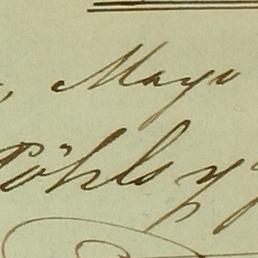 , Mayo
Pöhls y